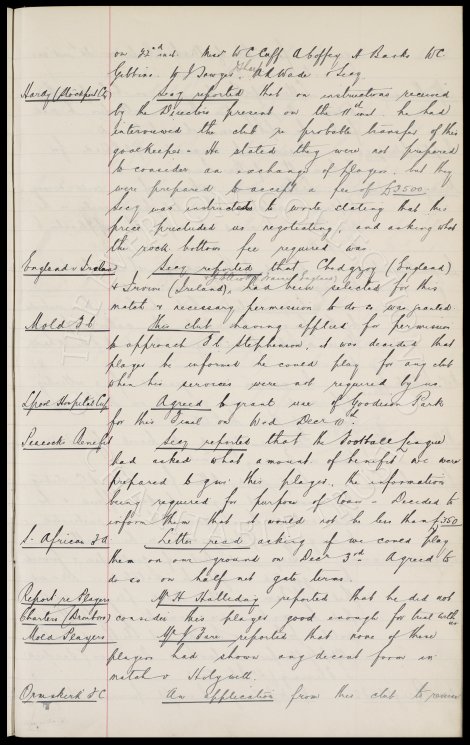 on 22nd inst. Messrs W C Cuff A Coffey A Banks W C
Gibbins W J Sawyer A Wade & Secy
Hardy (Stockport Cy) Secy reported that on instructions received
by the Directors present on the 11th inst. he had
interviewed the club re probable transfer of this
goalkeeper. He stated they were not prepared
to consider an exchange of players, but they
were prepared to accept a fee of £3500.
Secy was instructed to write stating that this
price precluded us negotiating, and asking what
the rock bottom fee required was.
England v Ireland Secy reported that Chedgzoy (England)
& Irvine (Ireland), had been selected for this
match & necessary permission to do so was granted.
Mold F.C. This club having applied for permission
to approach F.C. Stephenson, it was decided that
player be informed he could play for any club
when his services were not required by us.
Lpool Hospital Cup Agreed to grant use of Goodison Park
for this Final on Wed Decr 10th.
Peacocks Benefit Secy reported that the Football League
had asked what amount of benefit we were
prepared to give this player, the information
being required for purpose of loan. Decided to
inform them that it would not be less than £350
S. African F.A Letter read asking if we could play
them on our ground on Decr 3rd. Agreed to
do so on half net gate terms.
Report re Players Mr H Halliday reported that he did not
Charters consider this player good enough for trial with us
Mold Players Mr J Fare reported that none of these
players had shown any decent form in
match v Holywell.
Ormskirk F.C An application from this club to